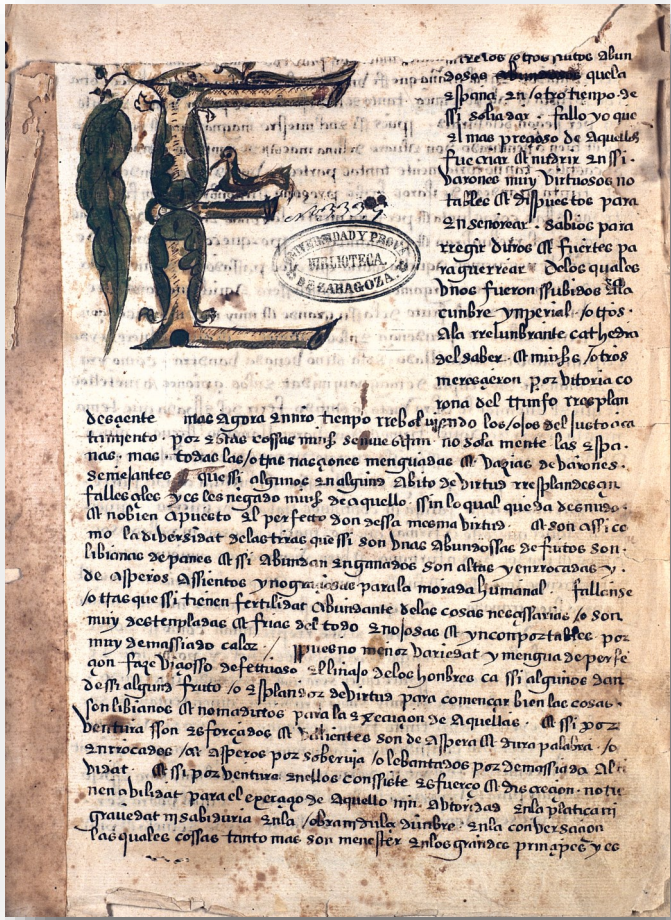 E
entre los otros frutos abun
dosos quela
españa en otro tienpo de
ssi solia dar. fallo yo que
el mas preçioso de aquellos
fue criar et nudrir en ssi.
varones muy virtuosos no
tables et dispuestos para
ensenorear. sabios para
rregir duros et fuertes pa
ra guerrear. Delos quales
vnos fueron ssubidos ala
cunbre ynperial. otros.
ala rrelunbrante cathedra
del saber. et muchos otros
mereçieron por vitoria co
rona del triunfo rresplan
UNIVERSIDAD Y PROVª
BIBLIOTECA.
DE ZARAGOZA
desçiente mas agora en nuestro tienpo rreboluiendo los ojos del justo aca
tamiento. por estas cossas mucho no sola mente las espa.
nas. mas. todas las otras naçiones menguadas et vazias de varones.
semejantes que ssi algunos en algund abito de virtud rresplandesçen
fallesçeles y es les negado mucho de aquello ssin lo qual queda desnudo.
et no bien apuesto el perfecto don dessa mesma virtud. et son assi co
mo la diuersidat delas tierras que ssi son vnas abundossas de frutos son.
libianas de panes et ssi abundan en ganados son altas y enrrocadas y.
de asperos assientos y no graçiosas para la morada humanal. fallanse
otras que ssi tienen fertilidat abundante delas cosas neçessarias o son
muy destenpladas et frias del todo enojosas et ynconportables por
muy demassiado calor. pues no menor variedat y mengua de perfe
çion faze viçiosso defettuoso el linaje delos honbres ca ssi algunos dan
de ssi algund fruto o esplandor de virtud para començar bien las cosas.
son libianos et no maduros para la execuçion de aquellas. et ssi por
ventura sson esforçados et valientes son de aspera et dura palabra. o
enrrocados et asperos por soberuja o lebantados por demassiada
vidat. et ssi por ventura enellos conssiste esfuerço et discreçion. no tie
nen abilidat para el exerçiçio de aquello nin. abtoridad enla platica ni
grauedat ni sabiduria enla obra enla conversaçion
las quales cossas tanto mas son menester enlos grandes prinçipes y es